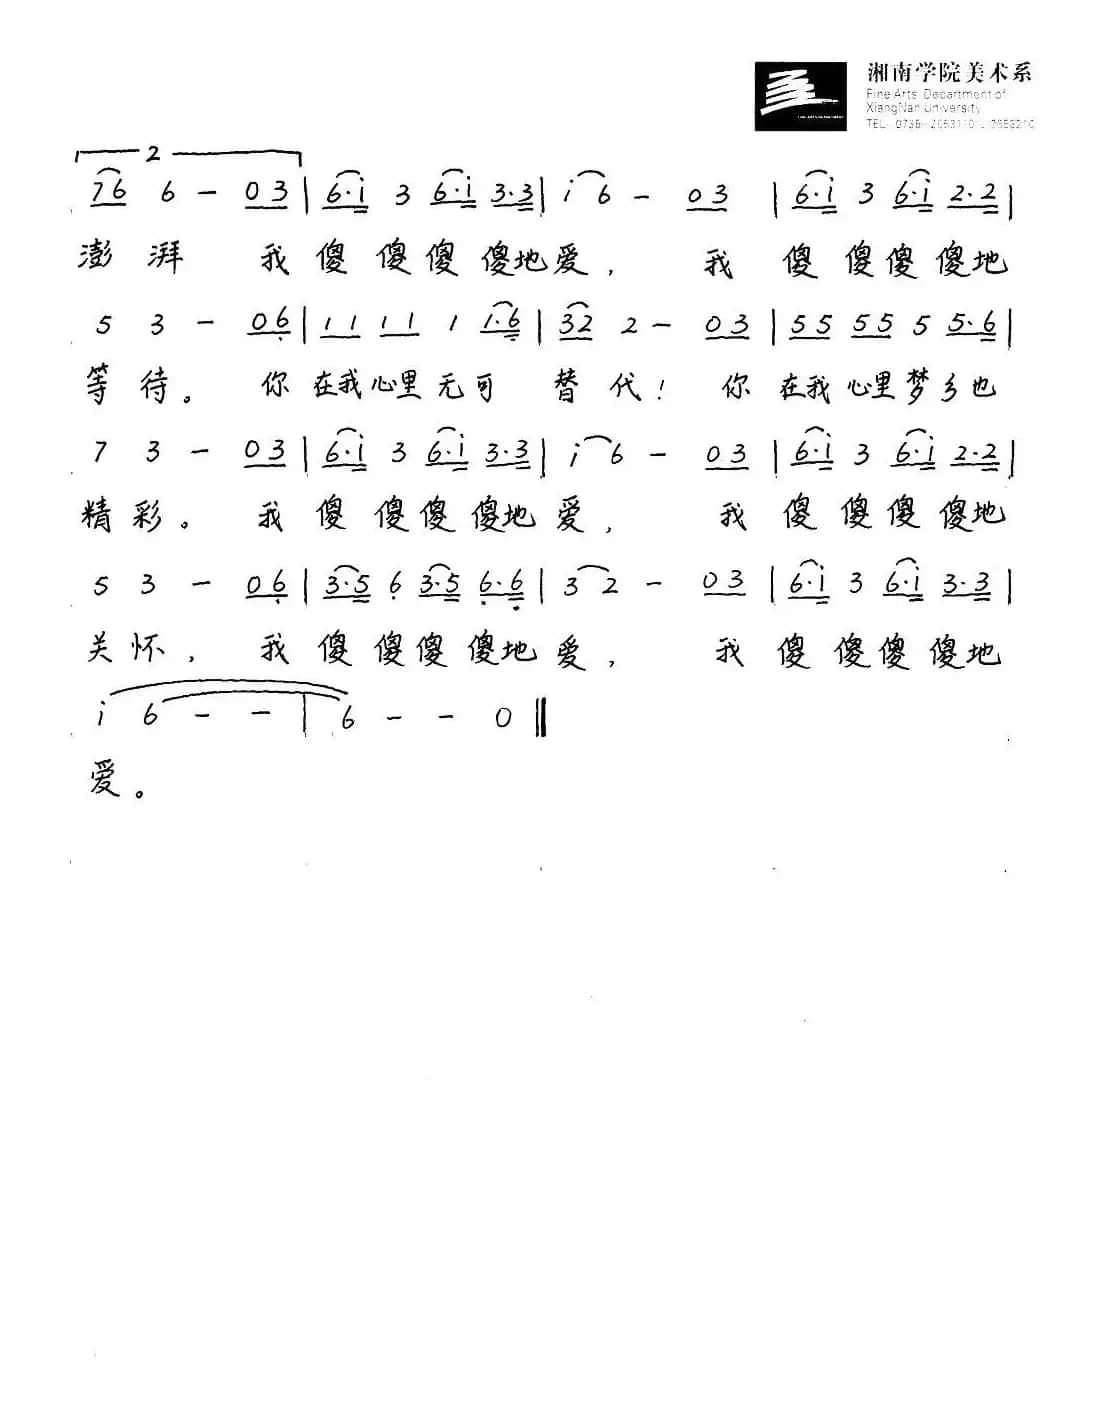 湘南学院美术系
Fine Arts Department of
XiangNan University
2
76 6 - 03 | 6·i 3 6·i 3·3 | i 6 - 03 | 6·i 3 6·i 2·2 |
澎湃 我傻傻傻傻地爱, 我傻傻傻傻地
5 3 - 06 | 11 11 1 1·6 | 32 2 - 03 | 55 55 5 5·6 |
等待。 你在我心里无可替代! 你在我心里梦乡也
7 3 - 03 | 6·i 3 6·i 3·3 | i 6 - 03 | 6·i 3 6·i 2·2 |
精彩。 我傻傻傻傻地爱, 我傻傻傻傻地
5 3 - 06 | 3·5 6 3·5 6·6 | 3 2 - 03 | 6·i 3 6·i 3·3 |
关怀, 我傻傻傻傻地爱, 我傻傻傻傻地
i 6 - - | 6 - - 0 ‖
爱。